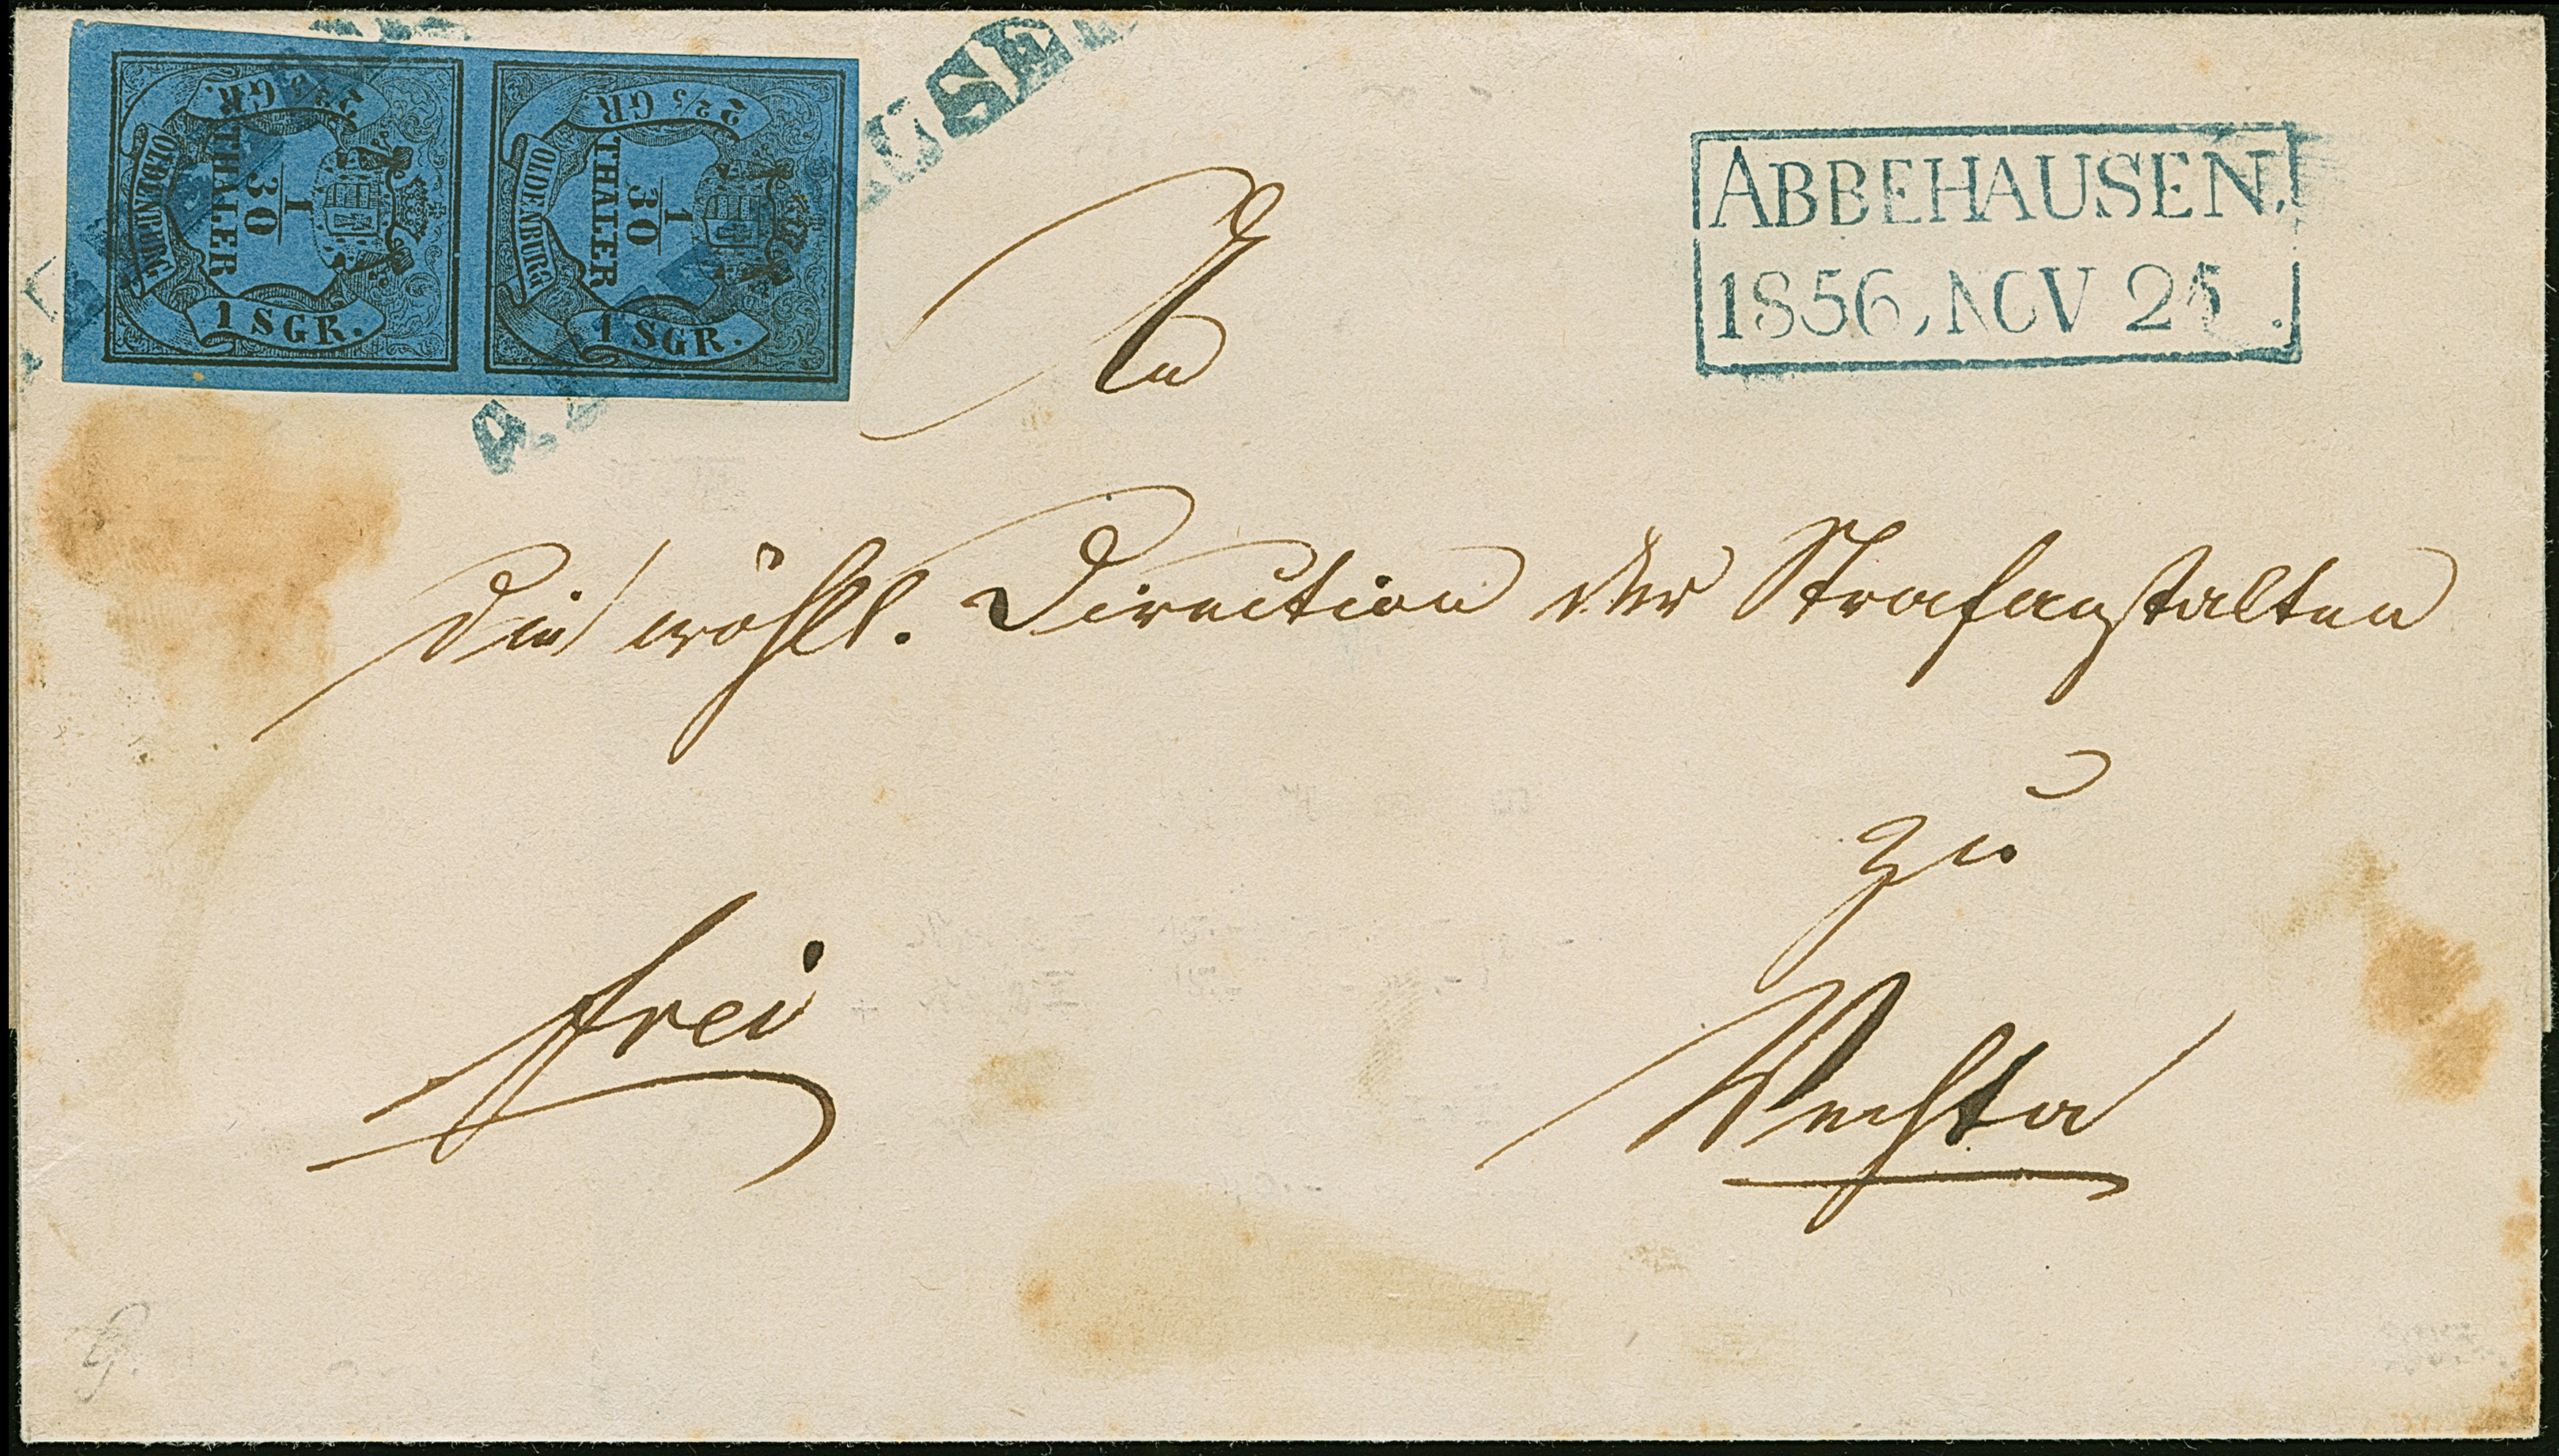 2 2/5 GR.
OLDENBURG
1/30
THALER
1 SGR.
2 2/5 GR.
OLDENBURG
1/30
THALER
1 SGR.
ABBEHAUSEN.
1856, NOV 25.
An
die wohll. Direction der Strafanstalten
zu
frei
Vechta